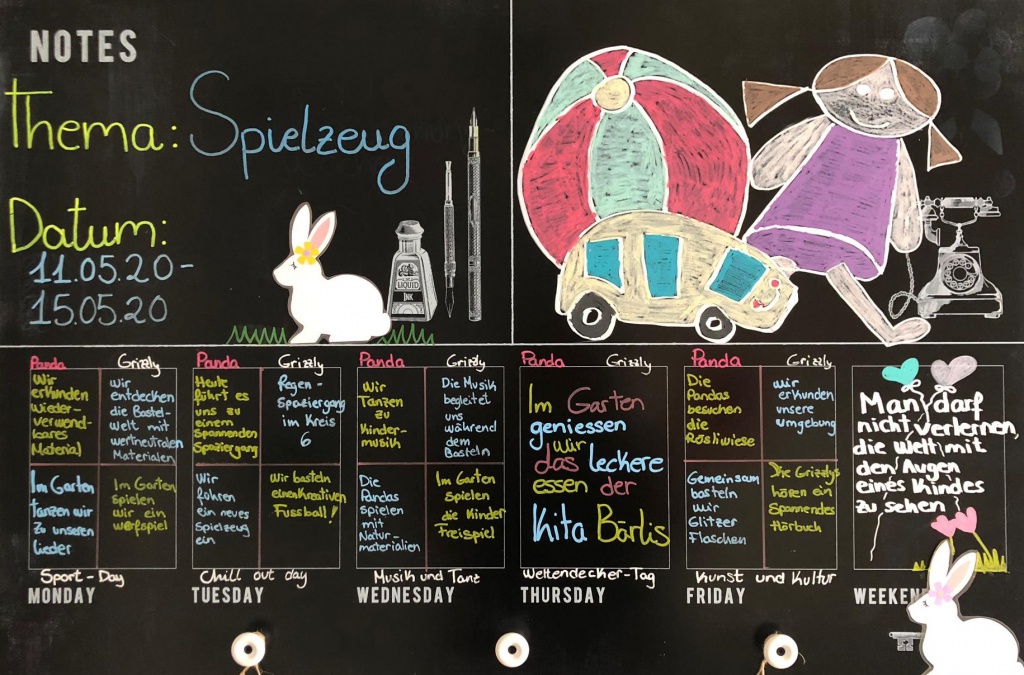 NOTES
Thema: Spielzeug
Datum:
11.05.20-
15.05.20
LIQUID
INK
Panda
Grizzly
Wir
erkunden
wieder-
verwend-
bares
Material
wir
entdecken
die Bastel-
welt mit
wertneutralen
Materialen
Im Garten
tanzen wir
zu unseren
lieder
Im Garten
spielen
wir ein
werfspiel
Sport-Day
MONDAY
Panda
Grizzly
Heute
führt es
uns zu
einem
Spannenden
Spaziergang
Regen-
Spaziergang
im Kreis
6
Wir
führen
ein neues
Spielzeug
ein
Wir basteln
einen Kreativen
Fussball!
Chill out day
TUESDAY
Panda
Grizzly
Wir
Tanzen
zu
Kinder-
musik
Die Musik
begleitet
uns
während
dem
Basteln
Die
Pandas
Spielen
mit
Natur-
materialien
Im Garten
Spielen
die Kinder
Freispiel
Musik und Tanz
WEDNESDAY
Panda
Grizzly
Im Garten
geniessen
wir
das leckere
essen der
Kita Bärlis
Weltendecker-Tag
THURSDAY
Panda
Grizzly
Die
Pandas
besuchen
die
Rösliwiese
wir
erkunden
unsere
umgebung
Gemeinsam
basteln
wir
Glitzer
Flaschen
Die Grizzlys
hören ein
Spannendes
Hörbuch
Kunst und Kultur
FRIDAY
Man darf
nicht verlernen,
die Welt mit
den Augen
eines Kindes
zu sehen
WEEKEN